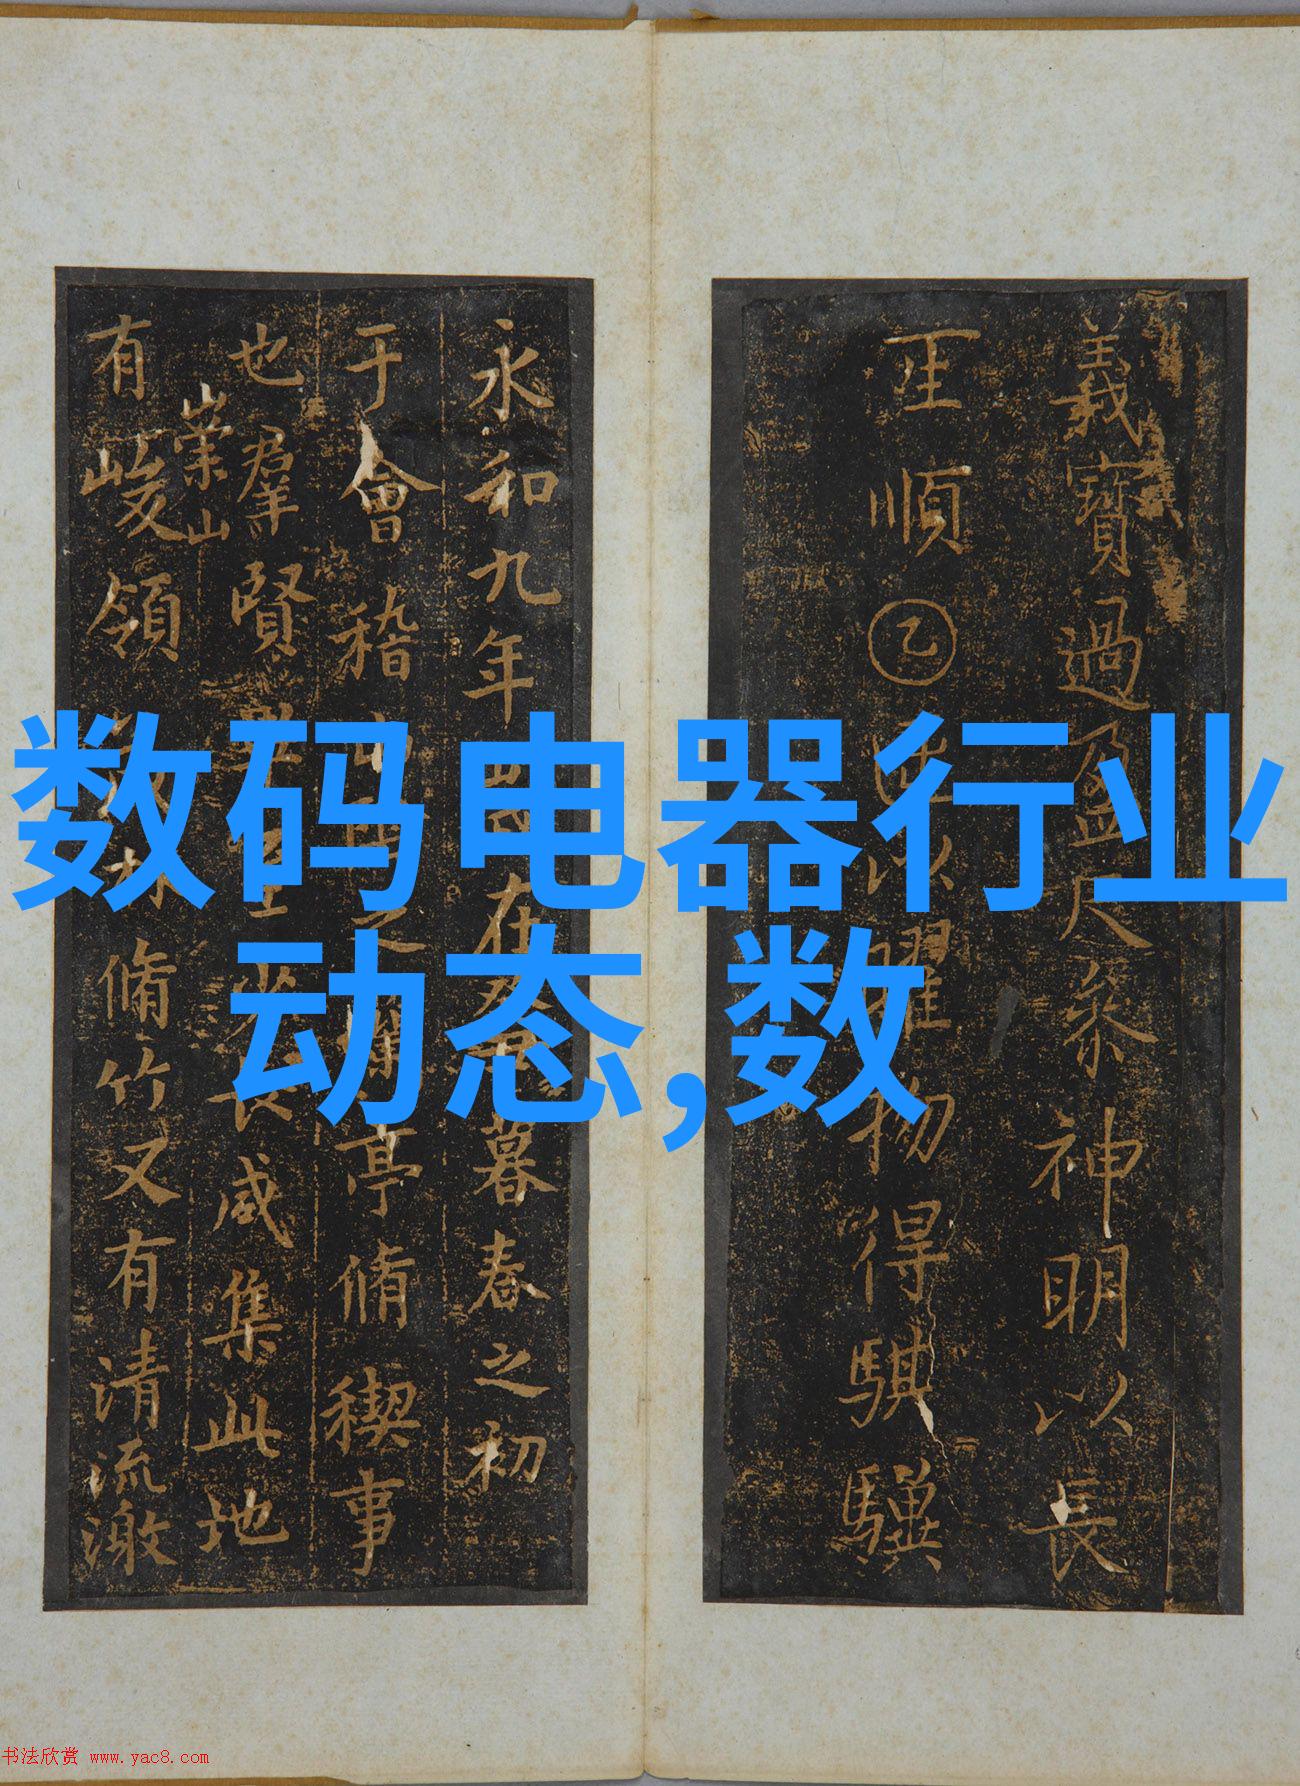 義寶過盈尺叅神明以長
順乙以耀物得騏驥
永和九年歲在癸丑暮春之初
于會稽山陰之蘭亭脩稧事
也羣賢畢至少長咸集此地
崇山
有峻領茂林脩竹又有清流激
数码电器行业
动态,数
书法欣赏 www.yac8.com